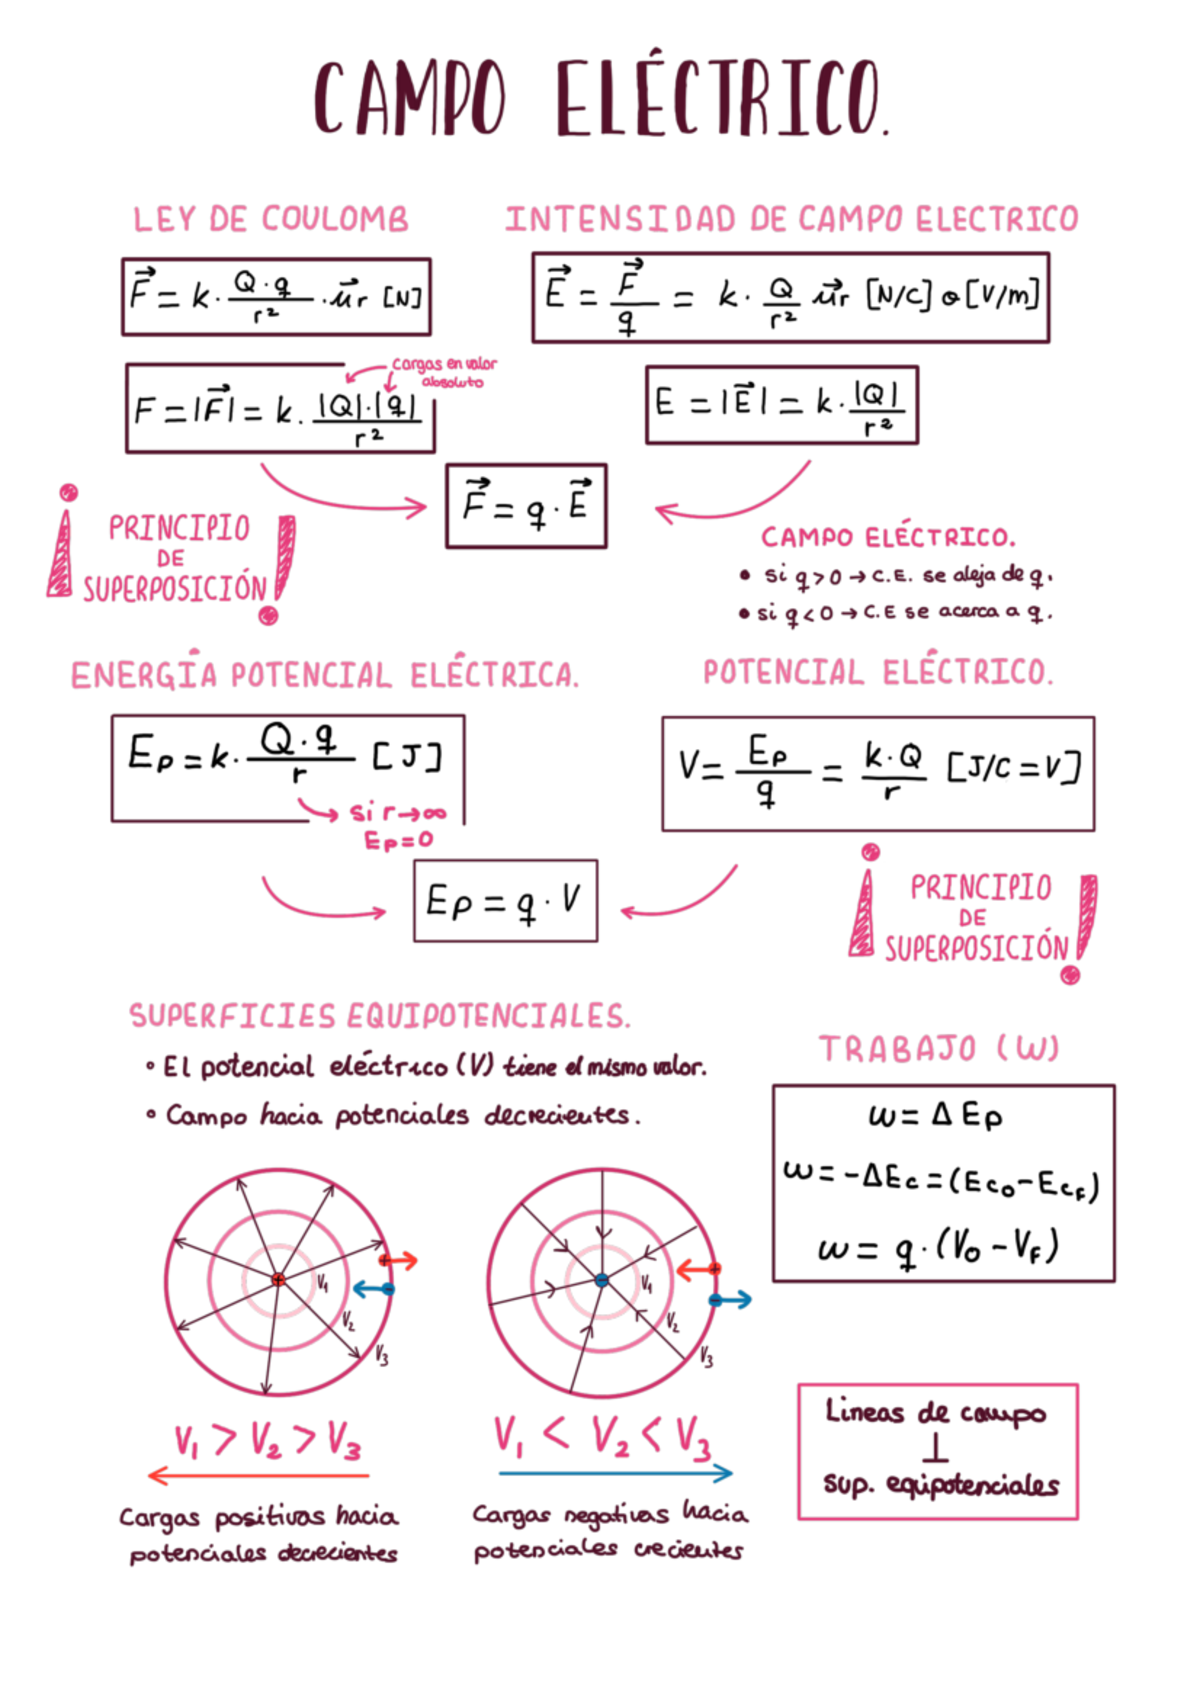 CAMPO ELÉCTRICO.
LEY DE COULOMB
F⃗ = k · Q · q / r² · u⃗r [N]
F = |F⃗| = k · |Q| · |q| / r²
cargas en valor
absoluto
INTENSIDAD DE CAMPO ELECTRICO
E⃗ = F⃗ / q = k · Q / r² u⃗r [N/C] o [V/m]
E = |E⃗| = k · |Q| / r²
F⃗ = q · E⃗
¡PRINCIPIO
DE
SUPERPOSICIÓN!
CAMPO ELÉCTRICO.
• Si q > 0 → C.E. se aleja de q.
• si q < 0 → C.E se acerca a q.
ENERGÍA POTENCIAL ELÉCTRICA.
Ep = k · Q · q / r [J]
si r → ∞
Ep = 0
POTENCIAL ELÉCTRICO.
V = Ep / q = k · Q / r [J/C = V]
Ep = q · V
¡PRINCIPIO
DE
SUPERPOSICIÓN!
SUPERFICIES EQUIPOTENCIALES.
° El potencial eléctrico (V) tiene el mismo valor.
° Campo hacia potenciales decrecientes.
+
V₁
V₂
V₃
+
-
V₁ > V₂ > V₃
Cargas positivas hacia
potenciales decrecientes
-
V₁
V₂
V₃
+
-
V₁ < V₂ < V₃
Cargas negativas hacia
potenciales crecientes
TRABAJO (W)
W = Δ Ep
W = -ΔEc = (Ec₀ - Ecf)
W = q · (V₀ - Vf)
Lineas de campo
⊥
sup. equipotenciales